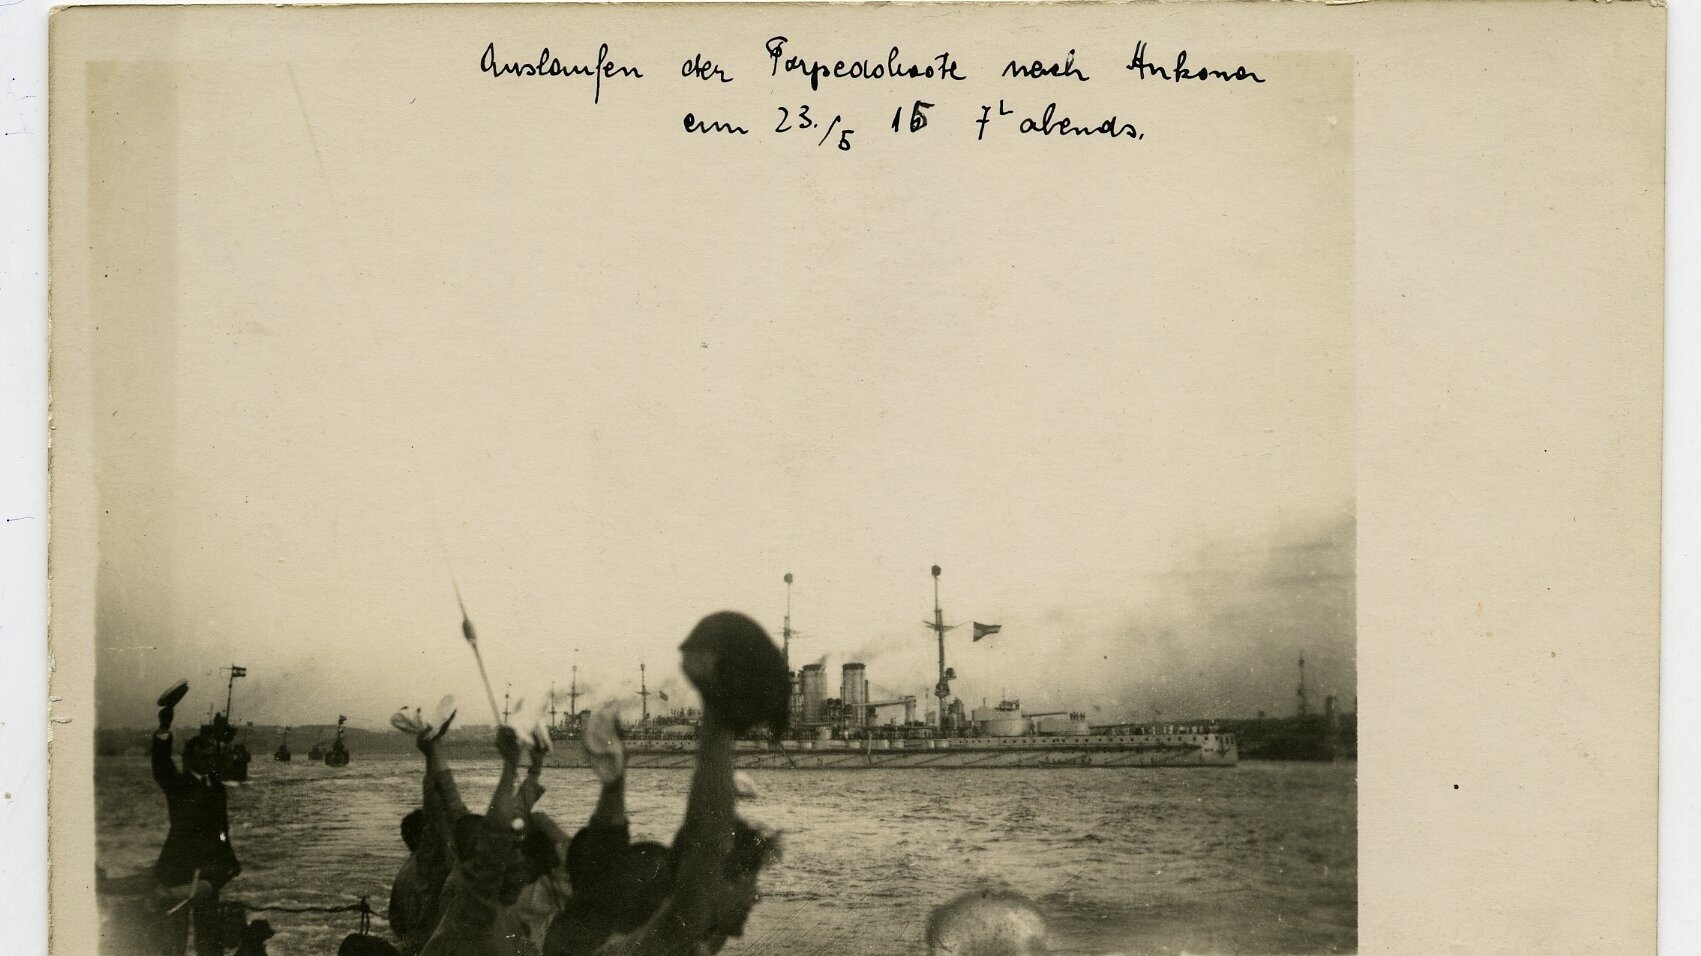 Auslaufen der Torpedoboote nach Ankona
am 23./5 15 7ʰ abends.